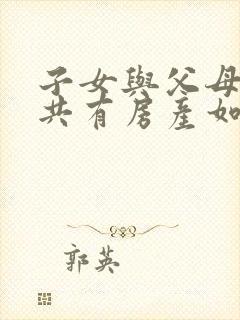 子女與父母
共有房產如
郭英